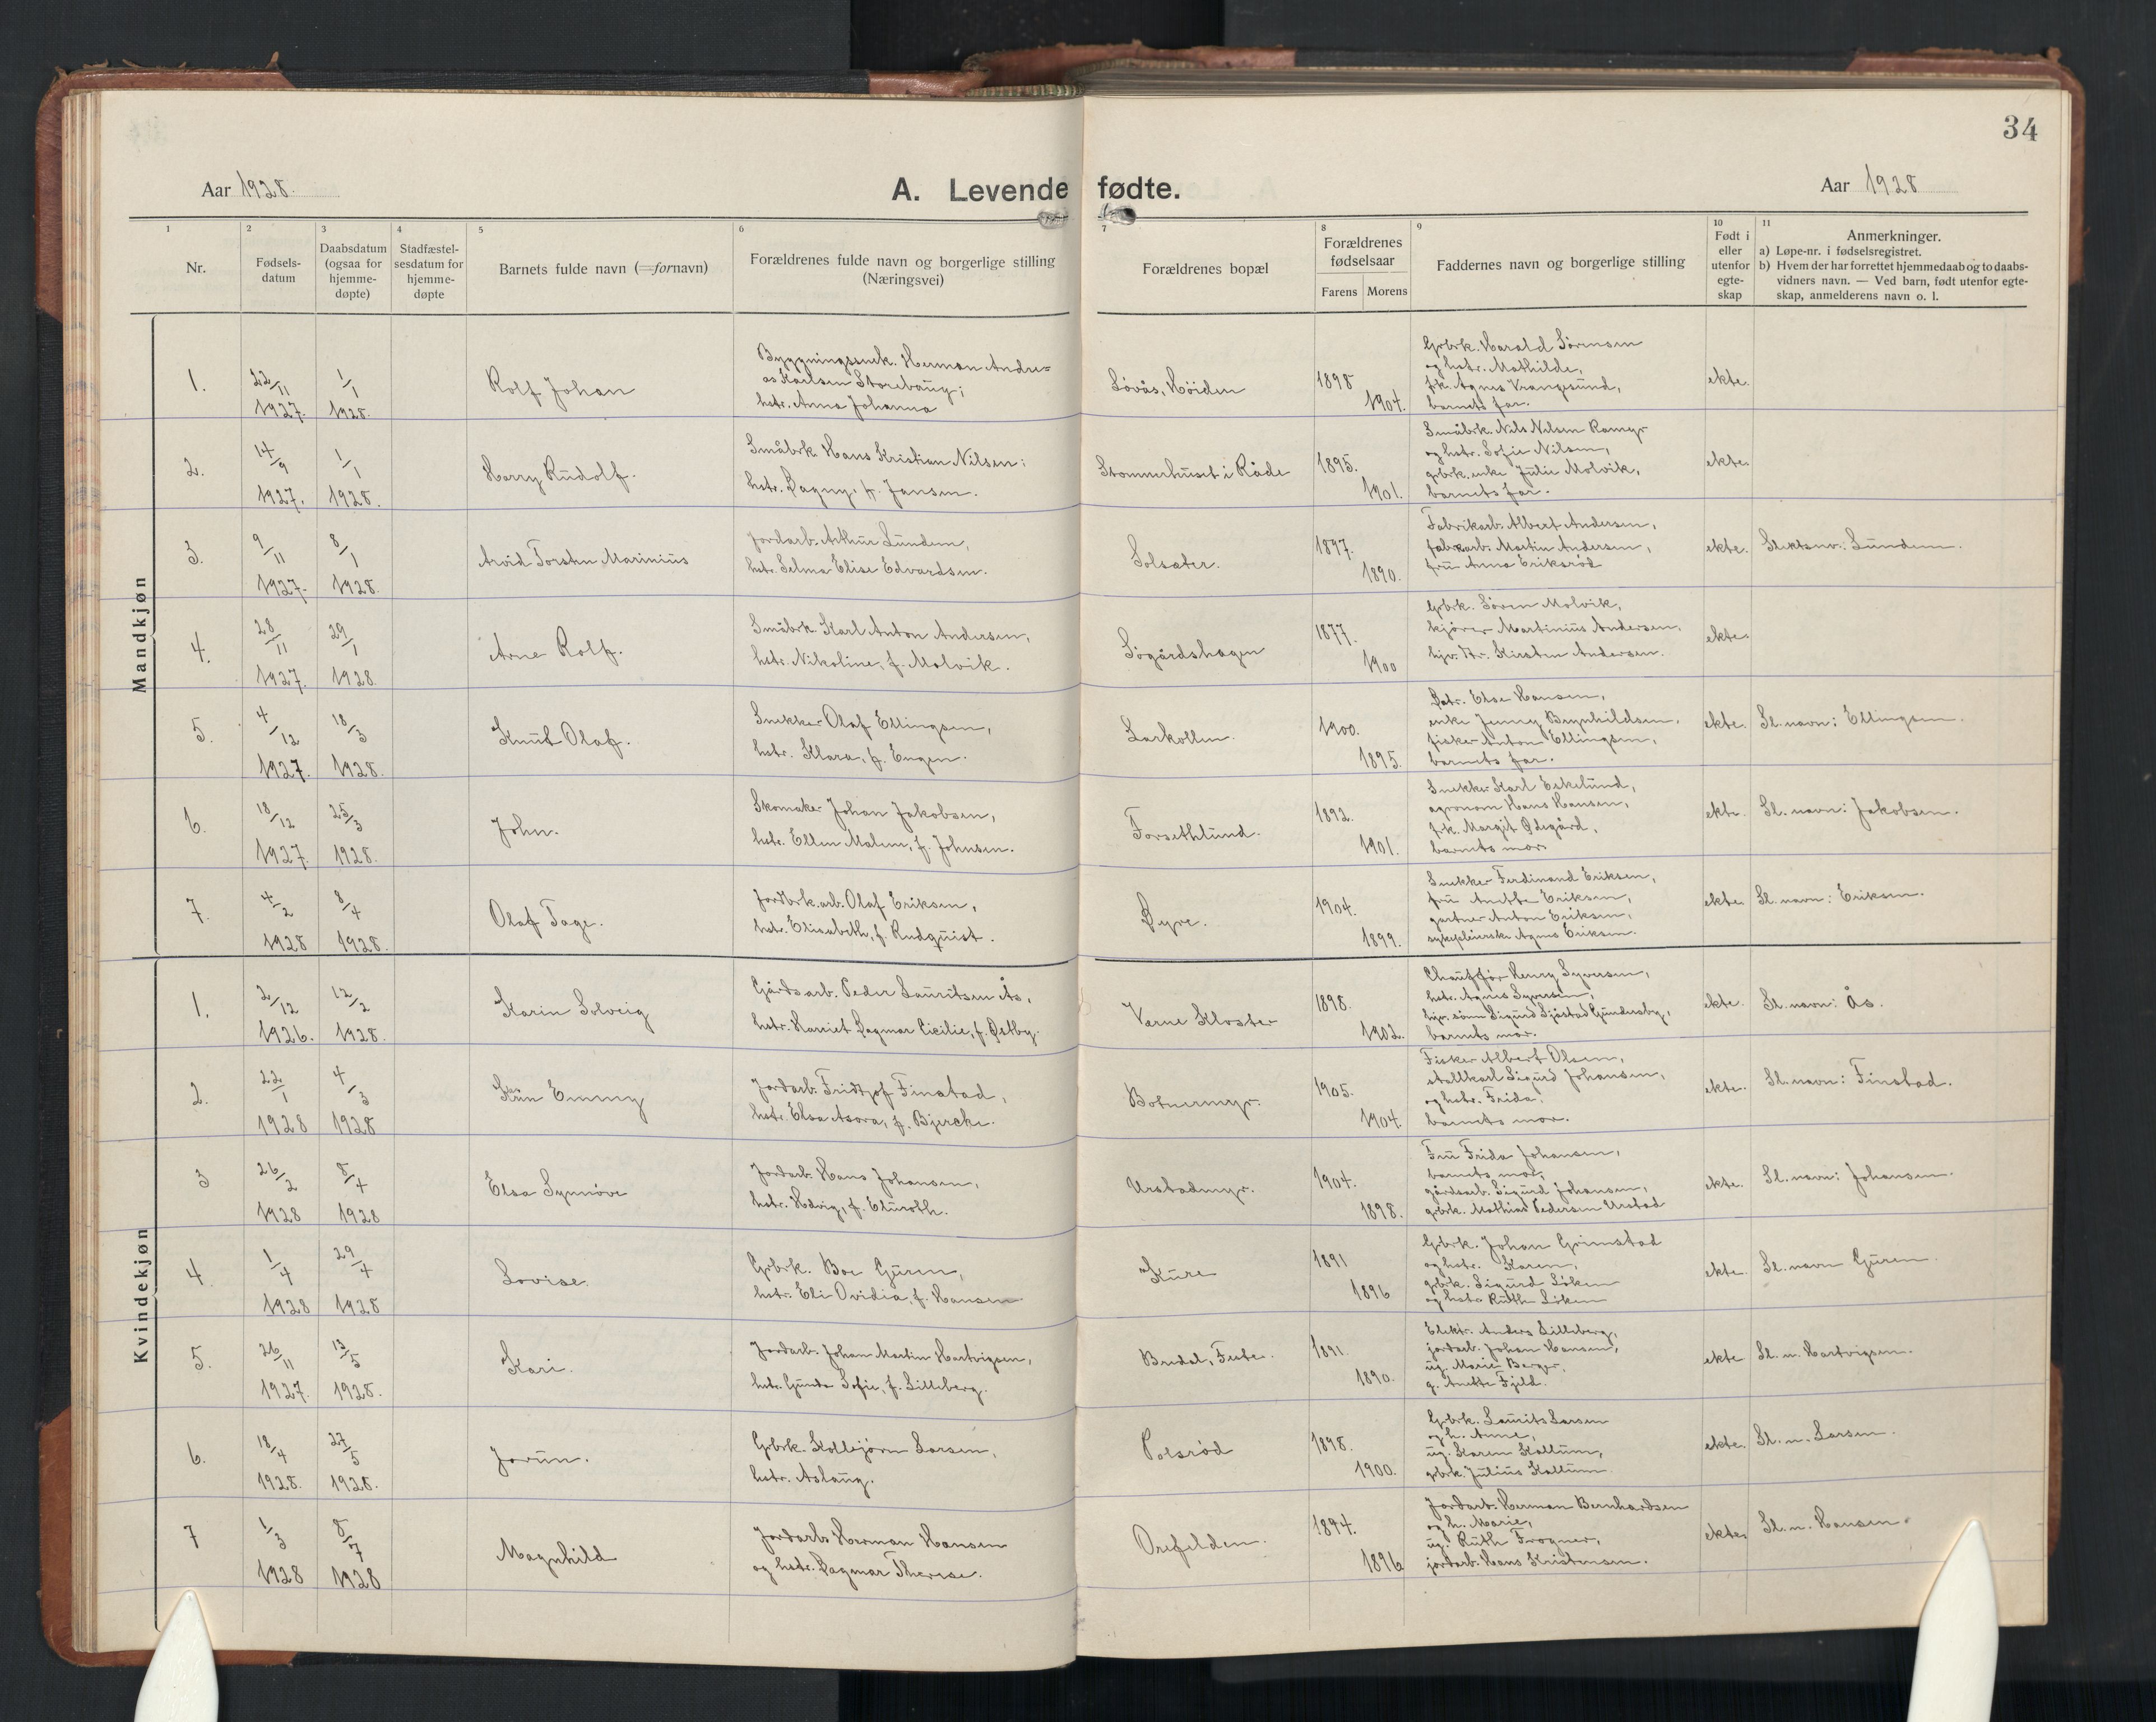 34
Aar 1928.
A. Levende fødte.
Aar 1928
1
Nr.
2
Fødsels-
datum
3
Daabsdatum
(ogsaa for
hjemme-
døpte)
4
Stadfæstel-
sesdatum for
hjemme-
døpte
5
Barnets fulde navn (=fornavn)
6
Forældrenes fulde navn og borgerlige stilling
(Næringsvei)
7
Forældrenes bopæl
8
Forældrenes
fødselsaar
Farens Morens
9
Faddernes navn og borgerlige stilling
10
Født i
eller
utenfor
egte-
skap
11
Anmerkninger.
a) Løpe-nr. i fødselsregistret.
b) Hvem der har forrettet hjemmedaab og to daabs-
vidners navn. — Ved barn, født utenfor egte-
skap, anmelderens navn o. l.
Mandkjøn
1.
22/11
1927.
1/1
1928.
Rolf Johan
Byggningssnek. Herman Andre=
as Karlsen Storebaug;
hstr. Anna Johanna
Løvås, Høiden
1898
1904.
Grbrk. Harald Sørensen
og hstr. Mathilde,
frk. Agnes Vrangesund,
barnets far.
ekte.
2.
14/9
1927.
1/1
1928.
Harry Rudolf.
Småbrk. Hans Kristian Nilsen;
hstr. Dagny, f. Jansen.
Strømmerhuset i Råde
1895.
1901.
Småbrk. Nils Nilsen Ramyr
og hstr. Sofie Nilsen,
grbrk. enke Julie Molvik,
barnets far.
ekte.
3.
9/11
1927.
8/1
1928.
Arvid Torsten Marinius
Jordarb. Arthur Lundem,
hstr. Selma Elise Edvardsen.
Solsæter.
1897.
1890.
Fabrikarb. Albert Andersen,
fabrarb. Martin Andersen,
fru Anna Eriksrød
ekte.
Slektsnv.: Lundem.
4.
28/11
1927.
29/1
1928.
Arne Rolf.
Småbrk. Karl Anton Andersen,
hstr. Nikoline, f. Molvik.
Søgårdshagen
1877.
1900
Grbrk. Søren Molvik,
kjører Martinius Andersen,
hjv. dtr. Kirsten Andersen.
ekte.
5.
4/12
1927.
18/3
1928.
Knut Olaf.
Snekker Olaf Ellingsen,
hstr. Klara, f. Engen.
Larkollen.
1900.
1895.
Datr. Else Hansen,
enke Jenny Brynhildsen,
fisker Anton Ellingsen,
barnets far.
ekte.
Sl. navn: Ellingsen.
6.
18/12
1927.
25/3
1928.
John.
Skomaker Johan Jakobsen,
hstr. Ellen Malene, f. Johnsen.
Forsethlund.
1892.
1901.
Snekker Karl Eskelund,
agronom Hans Hansen,
frk. Margit Ødegård,
barnets mor
ekte.
Sl. navn: Jakobsen.
7.
4/2
1928
8/4
1928.
Olaf Tage.
Jordbrk.arb. Olaf Eriksen,
hstr. Elisabeth, f. Rudquist.
Dyre.
1904.
1899.
Snekker Ferdinand Eriksen,
fru Anette Eriksen,
gartner Anton Eriksen,
sykepleierske Agnes Eriksen.
ekte
Sl. navn: Eriksen.
Kvindekjøn
1.
2/12
1926.
12/2
1928.
Karin Solveig
Gårdsarb. Peder Lauritsen Ås,
hstr. Harriet Dagmar Cicilie, f. Østby.
Værne Kloster
1898.
1902.
Chauffør Henry Syversen,
hstr. Agnes Syversen,
hjv. sønn Sigurd Sjøstad Gundersby,
barnets mor.
ekte.
Sl. navn: Ås.
2.
22/1
1928
4/3
1928
Emmy
Jordarb. Fridtjof Finstad,
hstr. Elsa Asora, f. Bjercke.
Botnermyr.
1905.
1904.
Fisker Albert Olsen,
stallkarl Sigurd Johansen,
og hstr. Frida,
barnets mor.
ekte.
Sl. navn: Finstad.
3
26/2
1928
8/4
1928
Elsa Synnøve
Jordarb. Hans Johansen,
hstr. Hedvig, f. Elnroth.
Urstadmyr.
1904.
1898.
Fru Frida Johansen,
barnets mor,
gårdsarb. Sigurd Johansen,
grbrk. Mathias Pedersen Urstad
ekte.
Sl. navn: Johansen.
4.
1/4
1928
29/4
1928
Lovise.
Grbrk. Boe Guren,
hstr. Eli Ovidia, f. Hansen
Kure
1891
1896
Grbrk. Johan Grimstad
og hstr. Karen,
grbrk. Sigurd Løken
og hstr. Ruth Løken
ekte.
Sl. navn Guren.
5.
26/11
1927.
13/5
1928.
Kari.
Jordarb. Johan Martin Hartvigsen,
hstr. Gunda Sofie, f. Lilleberg.
Bredal, Fuste.
1891.
1890.
Elektr. Anders Lilleberg,
jordarb. Johan Hansen,
ug. Marie Berger,
g. Anette Fjeld.
ekte
Sl. n. Hartvigsen.
6.
18/4
1928.
27/5
1928.
Jorun.
Grbrk. Kollbjørn Larsen,
hstr. Aslaug.
Polsrød
1898.
1900.
Grbrk. Laurits Larsen
og h. Anne,
ug. Karen Kallum,
grbrk. Julius Kallum.
ekte.
Sl. n. Larsen.
7
1/3
1928
8/7
1928
Magnhild
Jordarb. Herman Hansen
og hstr. Dagmar Therese.
Orefelden.
1894.
1896
Jordarb. Herman Bernhardsen
og h. Marie,
ug. Ruth Frogner,
jordarb. Hans Kristensen.
ekte
Sl. n. Hansen.